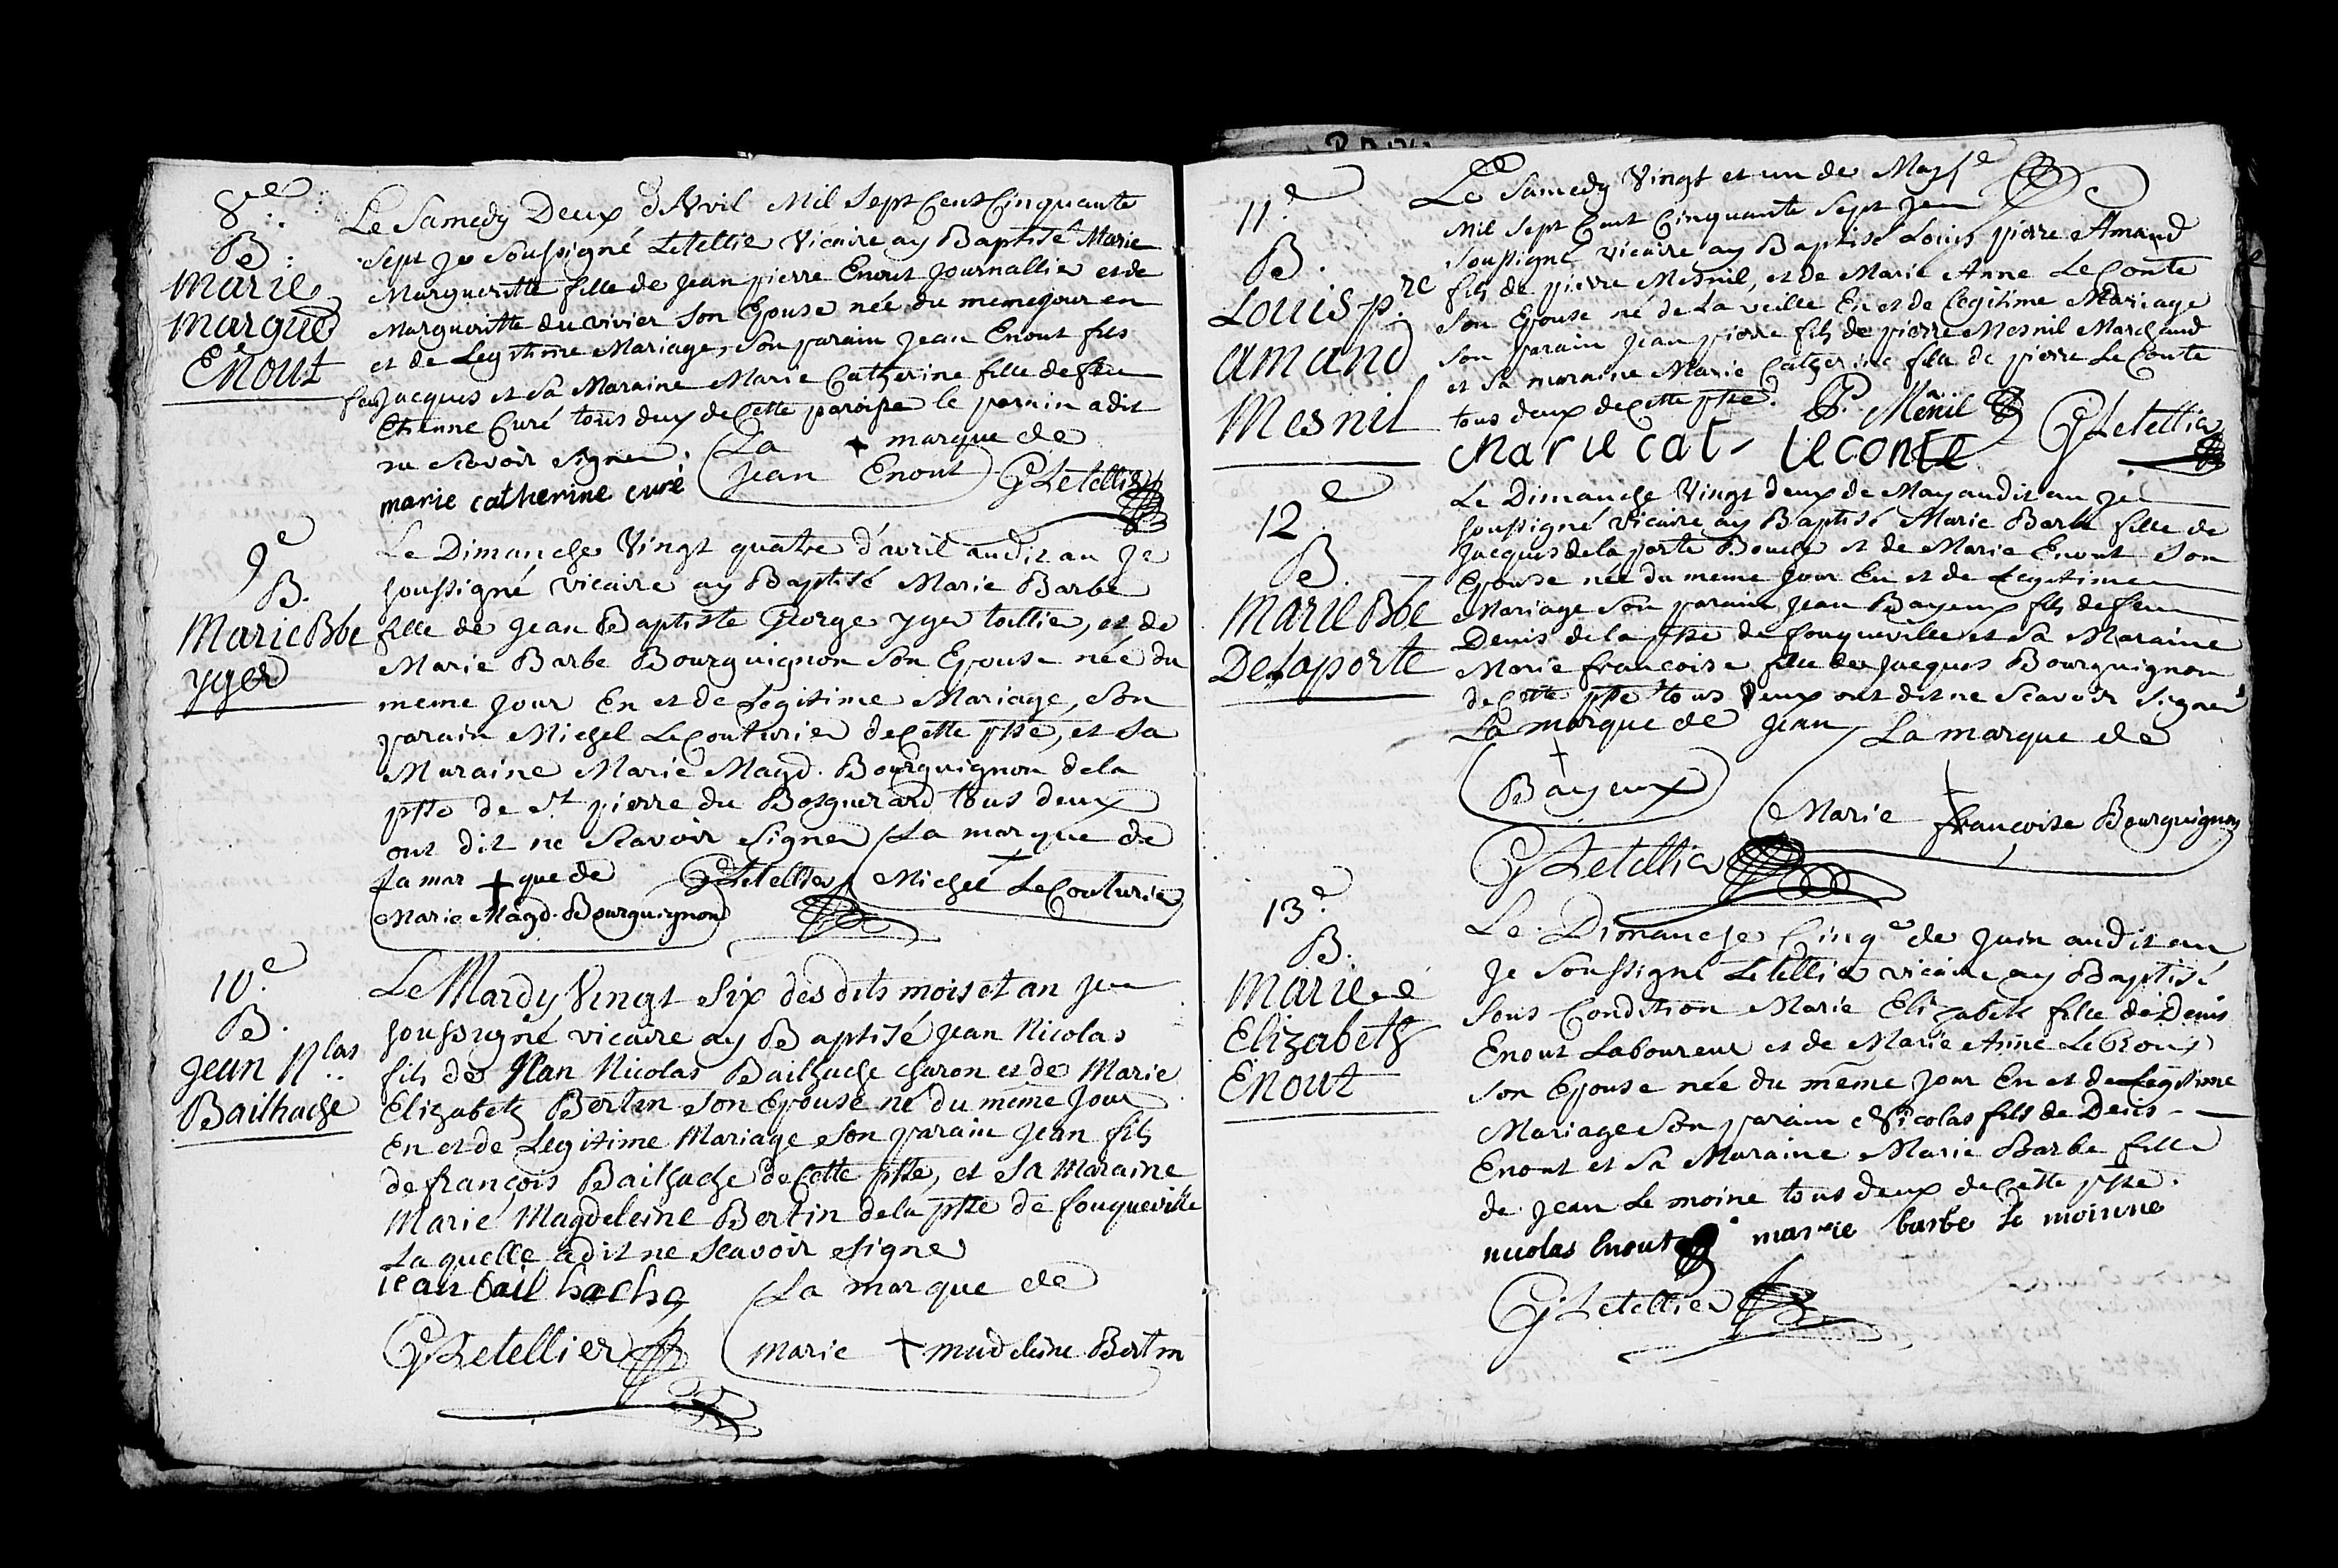 8.e
B.
Marie
Margue
Enout
Le Samedy Deux d'Avril Mil Sept Cent Cinquante
Sept Je Soussigné Letellier Vicaire ay Baptisé Marie
Margueritte fille de Jean pierre Enout Journallier et de
Margueritte du vivier son Epouse née du meme jour en
et de Legitime Mariage, son parain Jean Enout fils
feu Jacques et sa Maraine Marie Catherine fille de feu
Etienne Curé tous deux de Cette paroisse le parain a dit
ne Scavoir signer. La marque de
Jean Enout
marie catherine curé G Letellier
9e
B.
Marie Bbe
yger
Le Dimanche Vingt quatre d'avril audit an Je
soussigné vicaire ay Baptisé Marie Barbe
fille de Jean Baptiste George yger toillier, et de
Marie Barbe Bourguignon son Epouse née du
meme jour En et de Legitime Mariage, son
parain Michel Le Couturier de Cette psse, et sa
Maraine Marie Magd. Bourguignon de la
psse de St pierre du Bosguerard tous deux
ont dit ne Scavoir signer La marque de
La marque de G Letellier Michel Le Couturier
Marie Magd. Bourguignon
10.e
B.
Jean N.las
Bailhache
Le Mardy Vingt Six des dits mois et an Je
soussigné vicaire ay Baptisé Jean Nicolas
fils de Jean Nicolas Bailhache charon et de Marie
Elizabeth Bertin son Epouse né du meme Jour
En et de Legitime Mariage son parain Jean fils
de françois Bailhache de Cette psse, et sa Maraine
Marie Magdeleine Bertin de la psse de fouqueville
La quelle a dit ne Scavoir signer
iean bailhache La marque de
G Letellier marie madeleine Bertin
11.e
B.
Louis p.re
amand
Mesnil
Le Samedy Vingt et un de May
Mil Sept Cent Cinquante Sept Je
soussigné vicaire ay Baptisé Louis pierre Amand
fils de pierre Mesnil, et de Marie Anne Le Conte
son Epouse né de La veille En et de legitime Mariage
son parain Jean pierre fils de pierre Mesnil Marchand
et sa maraine Marie Catherine fille de pierre Le Conte
tous deux de Cette psse. P. Mênil G Letellier
Marie cat leconte
12.e
B.
Marie Bbe
Delaporte
Le Dimanche Vingt deux de May audit an Je
soussigné vicaire ay Baptisé Marie Barbe fille de
Jacques de la porte Boucher et de Marie Enout son
Epouse née du meme Jour En et de Legitime
Mariage son parain Jean Bayeux fils de feu
Denis de la psse de fouqueville et sa Maraine
Marie francoise fille de Jacques Bourguignon
de Cette psse tous deux ont dit ne Scavoir signer
La marque de Jean La marque de
Bayeux
Marie francoise Bourguignon
G Letellier
13.e
B.
Marie
Elizabeth
Enout
Le Dimanche Cinq.e de Juin audit an
Je Soussigné Letellier vicaire ay Baptisé
sous Condition Marie Elizabeth fille de Denis
Enout Laboureur et de Marie Anne
son Epouse née du même jour En et de Legitime
Mariage son parain Nicolas fils de Denis
Enout et sa Maraine Marie Barbe fille
de Jean Le moine tous deux de Cette psse.
nicolas Enout marie barbe le moinne
G Letellier